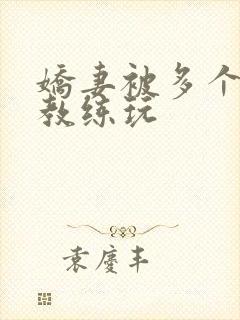 嬌妻被多个
教练玩
袁慶丰